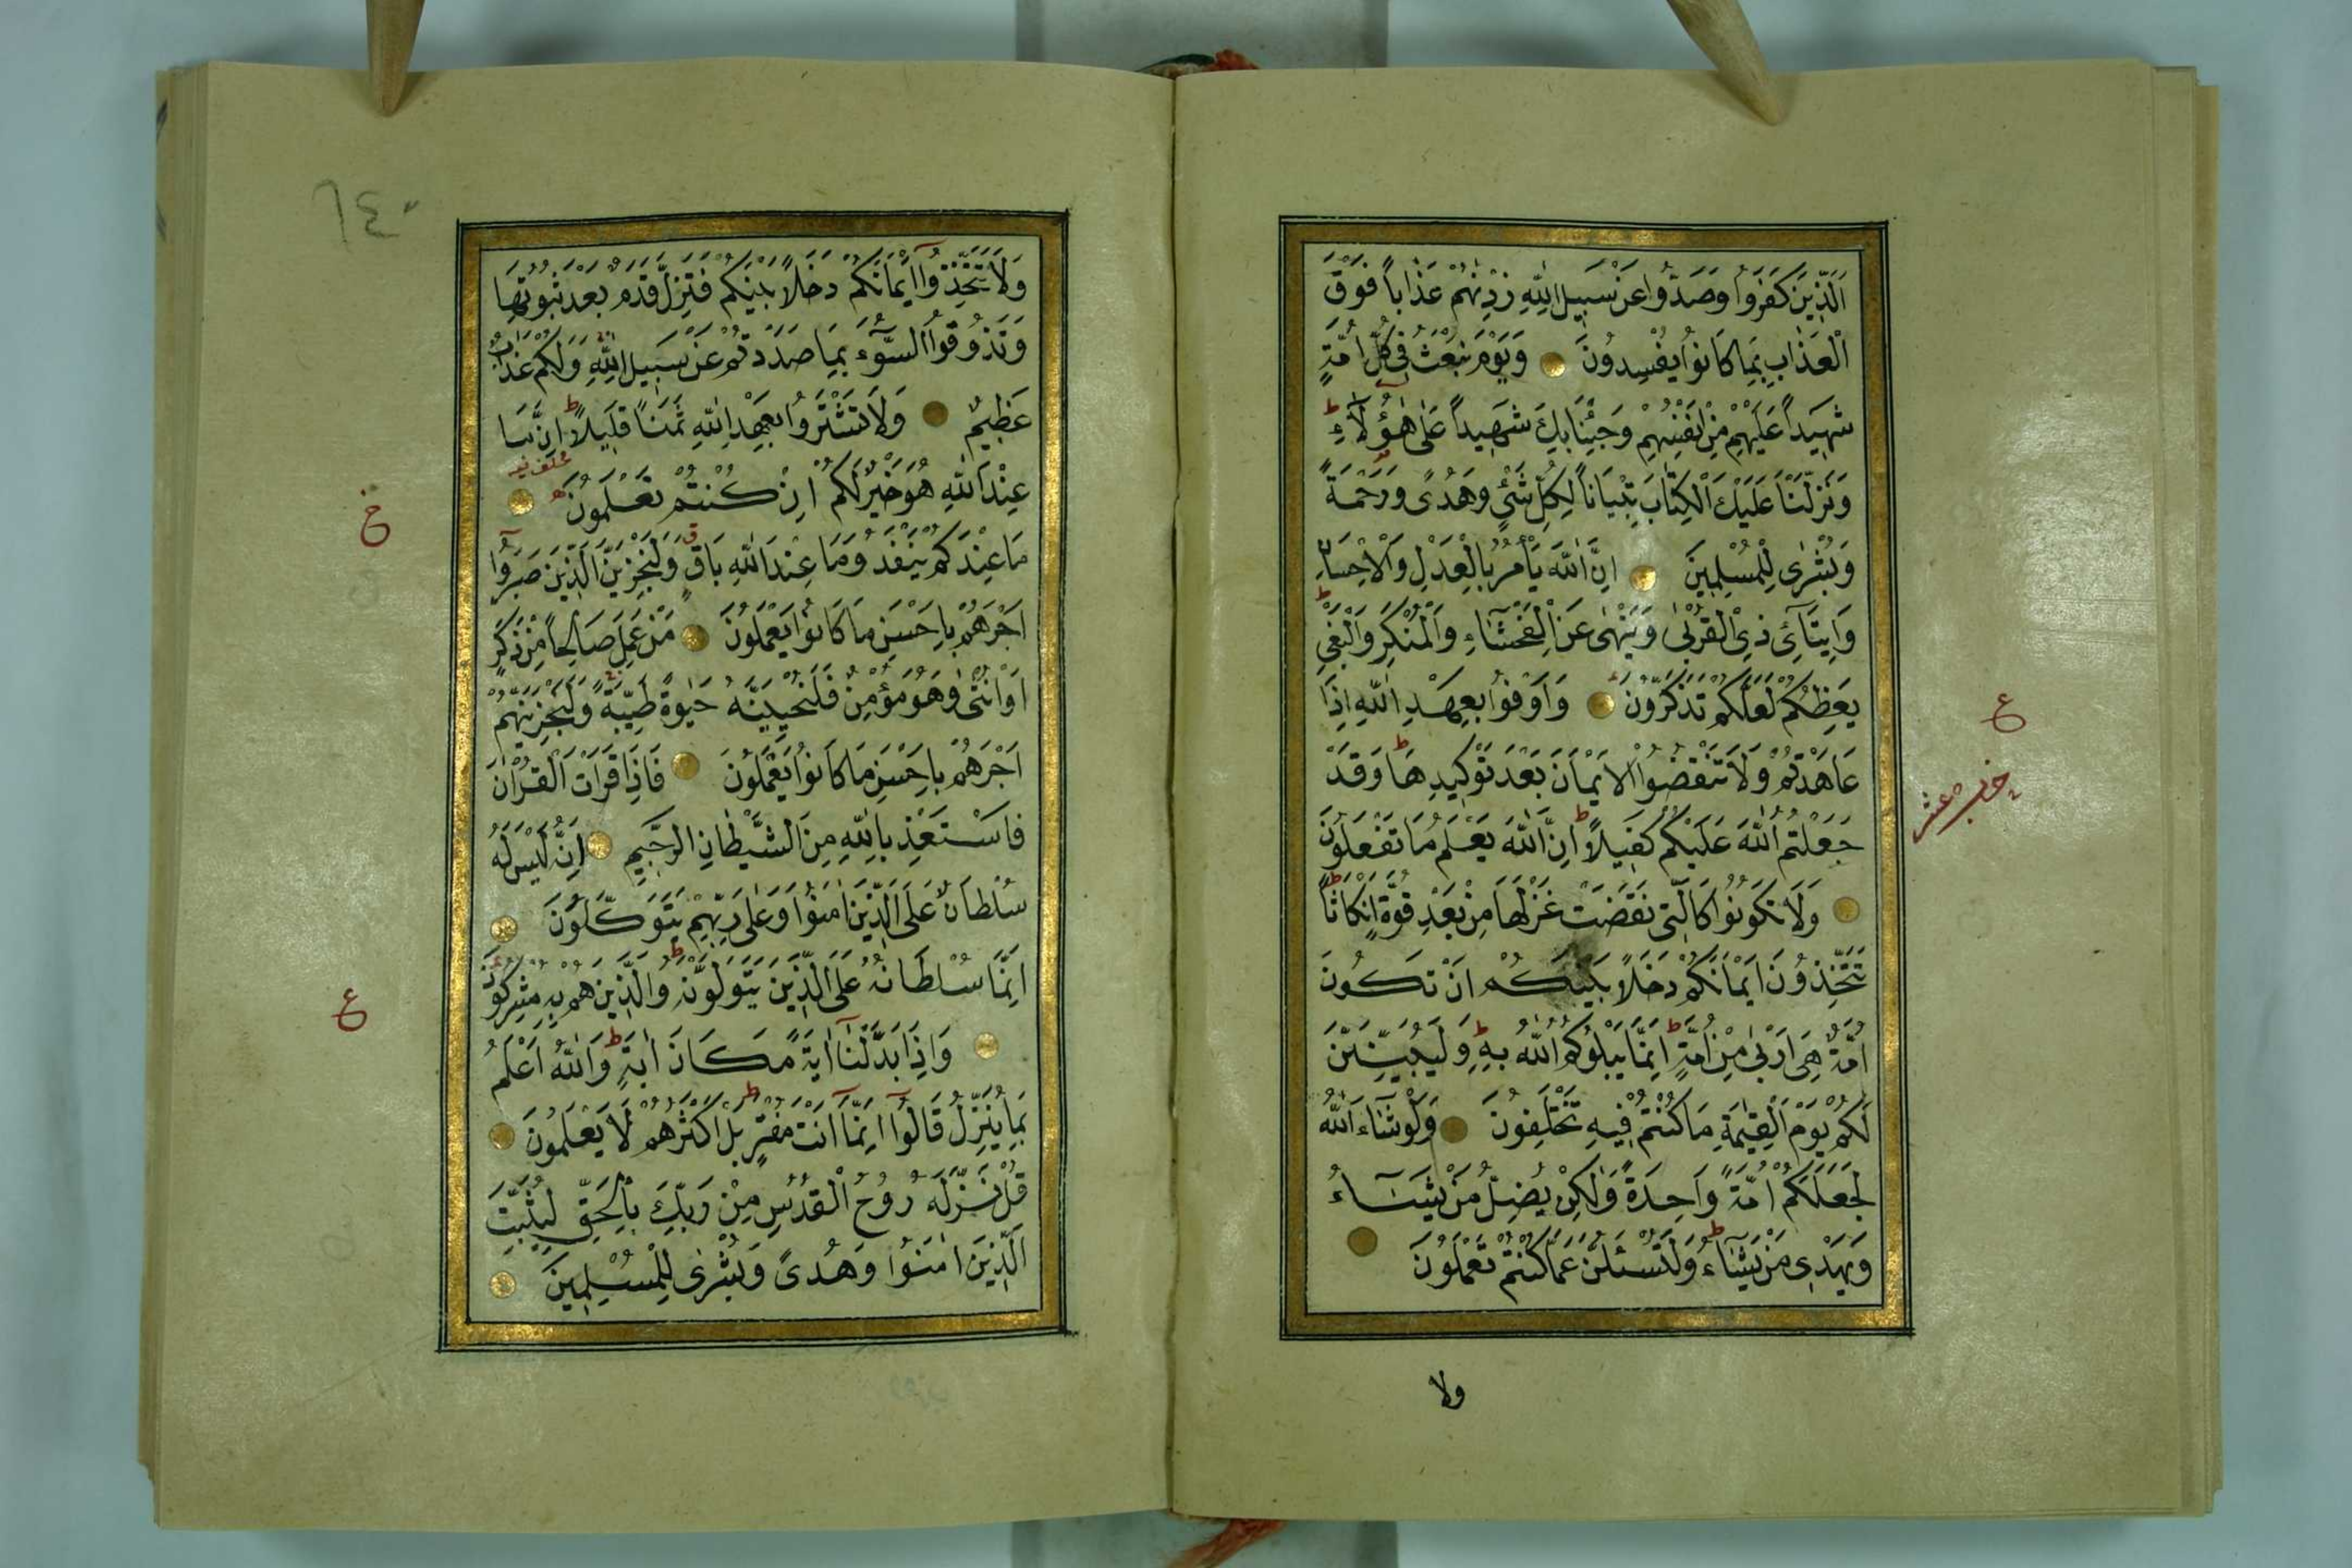 اَلَّذِينَ كَفَرُوا وَصَدُّوا عَنْ سَبِيلِ اللّٰهِ زِدْنٰهُمْ عَذَاباً فَوْقَ
الْعَذَابِ بِمَا كَانُوا يُفْسِدُونَ وَيَوْمَ نَبْعَثُ فِى كُلِّ اُمَّةٍ
شَهِيداً عَلَيْهِمْ مِنْ اَنْفُسِهِمْ وَجِئْنَا بِكَ شَهِيداً عَلٰى هٰؤُلَاءِ
وَنَزَّلْنَا عَلَيْكَ الْكِتَابَ تِبْيَاناً لِكُلِّ شَىْءٍ وَهُدًى وَرَحْمَةً
وَبُشْرٰى لِلْمُسْلِمِينَ اِنَّ اللّٰهَ يَأْمُرُ بِالْعَدْلِ وَالْاِحْسَانِ
وَاِيتَآئِ ذِى الْقُرْبٰى وَيَنْهٰى عَنِ الْفَحْشَاءِ وَالْمُنْكَرِ وَالْبَغْىِ
يَعِظُكُمْ لَعَلَّكُمْ تَذَكَّرُونَ وَاَوْفُوا بِعَهْدِ اللّٰهِ اِذَا
عَاهَدْتُمْ وَلَا تَنْقُضُوا الْاَيْمَانَ بَعْدَ تَوْكِيدِهَا وَقَدْ
جَعَلْتُمُ اللّٰهَ عَلَيْكُمْ كَفِيلاً اِنَّ اللّٰهَ يَعْلَمُ مَا تَفْعَلُونَ
وَلَا تَكُونُوا كَالَّتِى نَقَضَتْ غَزْلَهَا مِنْ بَعْدِ قُوَّةٍ اَنْكَاثاً
تَتَّخِذُونَ اَيْمَانَكُمْ دَخَلاً بَيْنَكُمْ اَنْ تَكُونَ
اُمَّةٌ هِىَ اَرْبٰى مِنْ اُمَّةٍ اِنَّمَا يَبْلُوكُمُ اللّٰهُ بِهِ وَلَيُبَيِّنَنَّ
لَكُمْ يَوْمَ الْقِيٰمَةِ مَا كُنْتُمْ فِيهِ تَخْتَلِفُونَ وَلَوْ شَاءَ اللّٰهُ
لَجَعَلَكُمْ اُمَّةً وَاحِدَةً وَلٰكِنْ يُضِلُّ مَنْ يَشَاءُ
وَيَهْدِى مَنْ يَشَاءُ وَلَتُسْئَلُنَّ عَمَّا كُنْتُمْ تَعْمَلُونَ
ولا
ع
حزب عشر
٦٤٠
وَلَا تَتَّخِذُوا اَيْمَانَكُمْ دَخَلاً بَيْنَكُمْ فَتَزِلَّ قَدَمٌ بَعْدَ ثُبُوتِهَا
وَتَذُوقُوا السُّوءَ بِمَا صَدَدْتُمْ عَنْ سَبِيلِ اللّٰهِ وَلَكُمْ عَذَابٌ
عَظِيمٌ وَلَا تَشْتَرُوا بِعَهْدِ اللّٰهِ ثَمَناً قَلِيلاً اِنَّمَا
عِنْدَ اللّٰهِ هُوَ خَيْرٌ لَكُمْ اِنْ كُنْتُمْ تَعْلَمُونَ
مَا عِنْدَكُمْ يَنْفَدُ وَمَا عِنْدَ اللّٰهِ بَاقٍ وَلَنَجْزِيَنَّ الَّذِينَ صَبَرُوا
اَجْرَهُمْ بِاَحْسَنِ مَا كَانُوا يَعْمَلُونَ مَنْ عَمِلَ صَالِحاً مِنْ ذَكَرٍ
اَوْ اُنْثٰى وَهُوَ مُؤْمِنٌ فَلَنُحْيِيَنَّهُ حَيٰوةً طَيِّبَةً وَلَنَجْزِيَنَّهُمْ
اَجْرَهُمْ بِاَحْسَنِ مَا كَانُوا يَعْمَلُونَ فَاِذَا قَرَأْتَ الْقُرْاٰنَ
فَاسْتَعِذْ بِاللّٰهِ مِنَ الشَّيْطَانِ الرَّجِيمِ اِنَّهُ لَيْسَ لَهُ
سُلْطَانٌ عَلَى الَّذِينَ اٰمَنُوا وَعَلٰى رَبِّهِمْ يَتَوَكَّلُونَ
اِنَّمَا سُلْطَانُهُ عَلَى الَّذِينَ يَتَوَلَّوْنَهُ وَالَّذِينَ هُمْ بِهِ مُشْرِكُونَ
وَاِذَا بَدَّلْنَا اٰيَةً مَكَانَ اٰيَةٍ وَاللّٰهُ اَعْلَمُ
بِمَا يُنَزِّلُ قَالُوا اِنَّمَا اَنْتَ مُفْتَرٍ بَلْ اَكْثَرُهُمْ لَا يَعْلَمُونَ
قُلْ نَزَّلَهُ رُوحُ الْقُدُسِ مِنْ رَبِّكَ بِالْحَقِّ لِيُثَبِّتَ
الَّذِينَ اٰمَنُوا وَهُدًى وَبُشْرٰى لِلْمُسْلِمِينَ
خ
ع